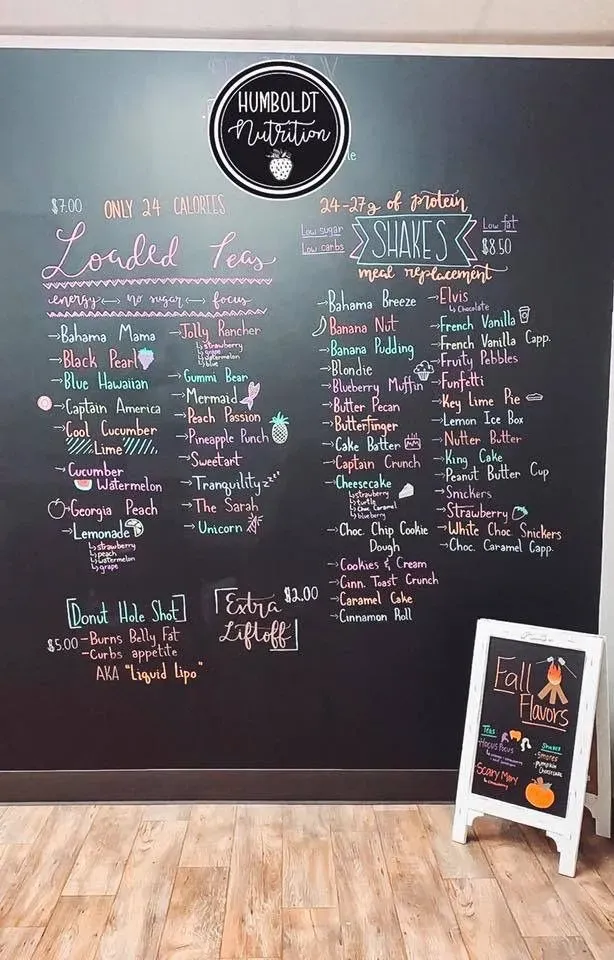 HUMBOLDT
Nutrition
$7.00 ONLY 24 CALORIES
Loaded Teas
energy no sugar focus
Bahama Mama
Black Pearl
Blue Hawaiian
Captain America
Cool Cucumber
Lime
Cucumber
Watermelon
Georgia Peach
Lemonade
strawberry
peach
watermelon
grape
Jolly Rancher
strawberry
grape
watermelon
blue
Gummi Bear
Mermaid
Peach Passion
Pineapple Punch
Sweetart
Tranquility zzz
The Sarah
Unicorn
[Donut Hole Shot]
$5.00 -Burns Belly Fat
-Curbs appetite
AKA "Liquid Lipo"
Extra $2.00
Liftoff
24-27g of protein
Low sugar
Low carbs
SHAKES
Low fat
$8.50
meal replacement
Bahama Breeze
Banana Nut
Banana Pudding
Blondie
Blueberry Muffin
Butter Pecan
Butterfinger
Cake Batter
Captain Crunch
Cheesecake
strawberry
turtle
Choc. Caramel
blueberry
Choc. Chip Cookie
Dough
Cookies & Cream
Cinn. Toast Crunch
Caramel Cake
Cinnamon Roll
Elvis
Chocolate
French Vanilla
French Vanilla Capp.
Fruity Pebbles
Funfetti
Key Lime Pie
Lemon Ice Box
Nutter Butter
King Cake
Peanut Butter Cup
Snickers
Strawberry
White Choc. Snickers
Choc. Caramel Capp.
Fall
Flavors
Teas
Hocus Pocus
Scary Mary
Shakes
-Smores
-pumpkin
Cheesecake